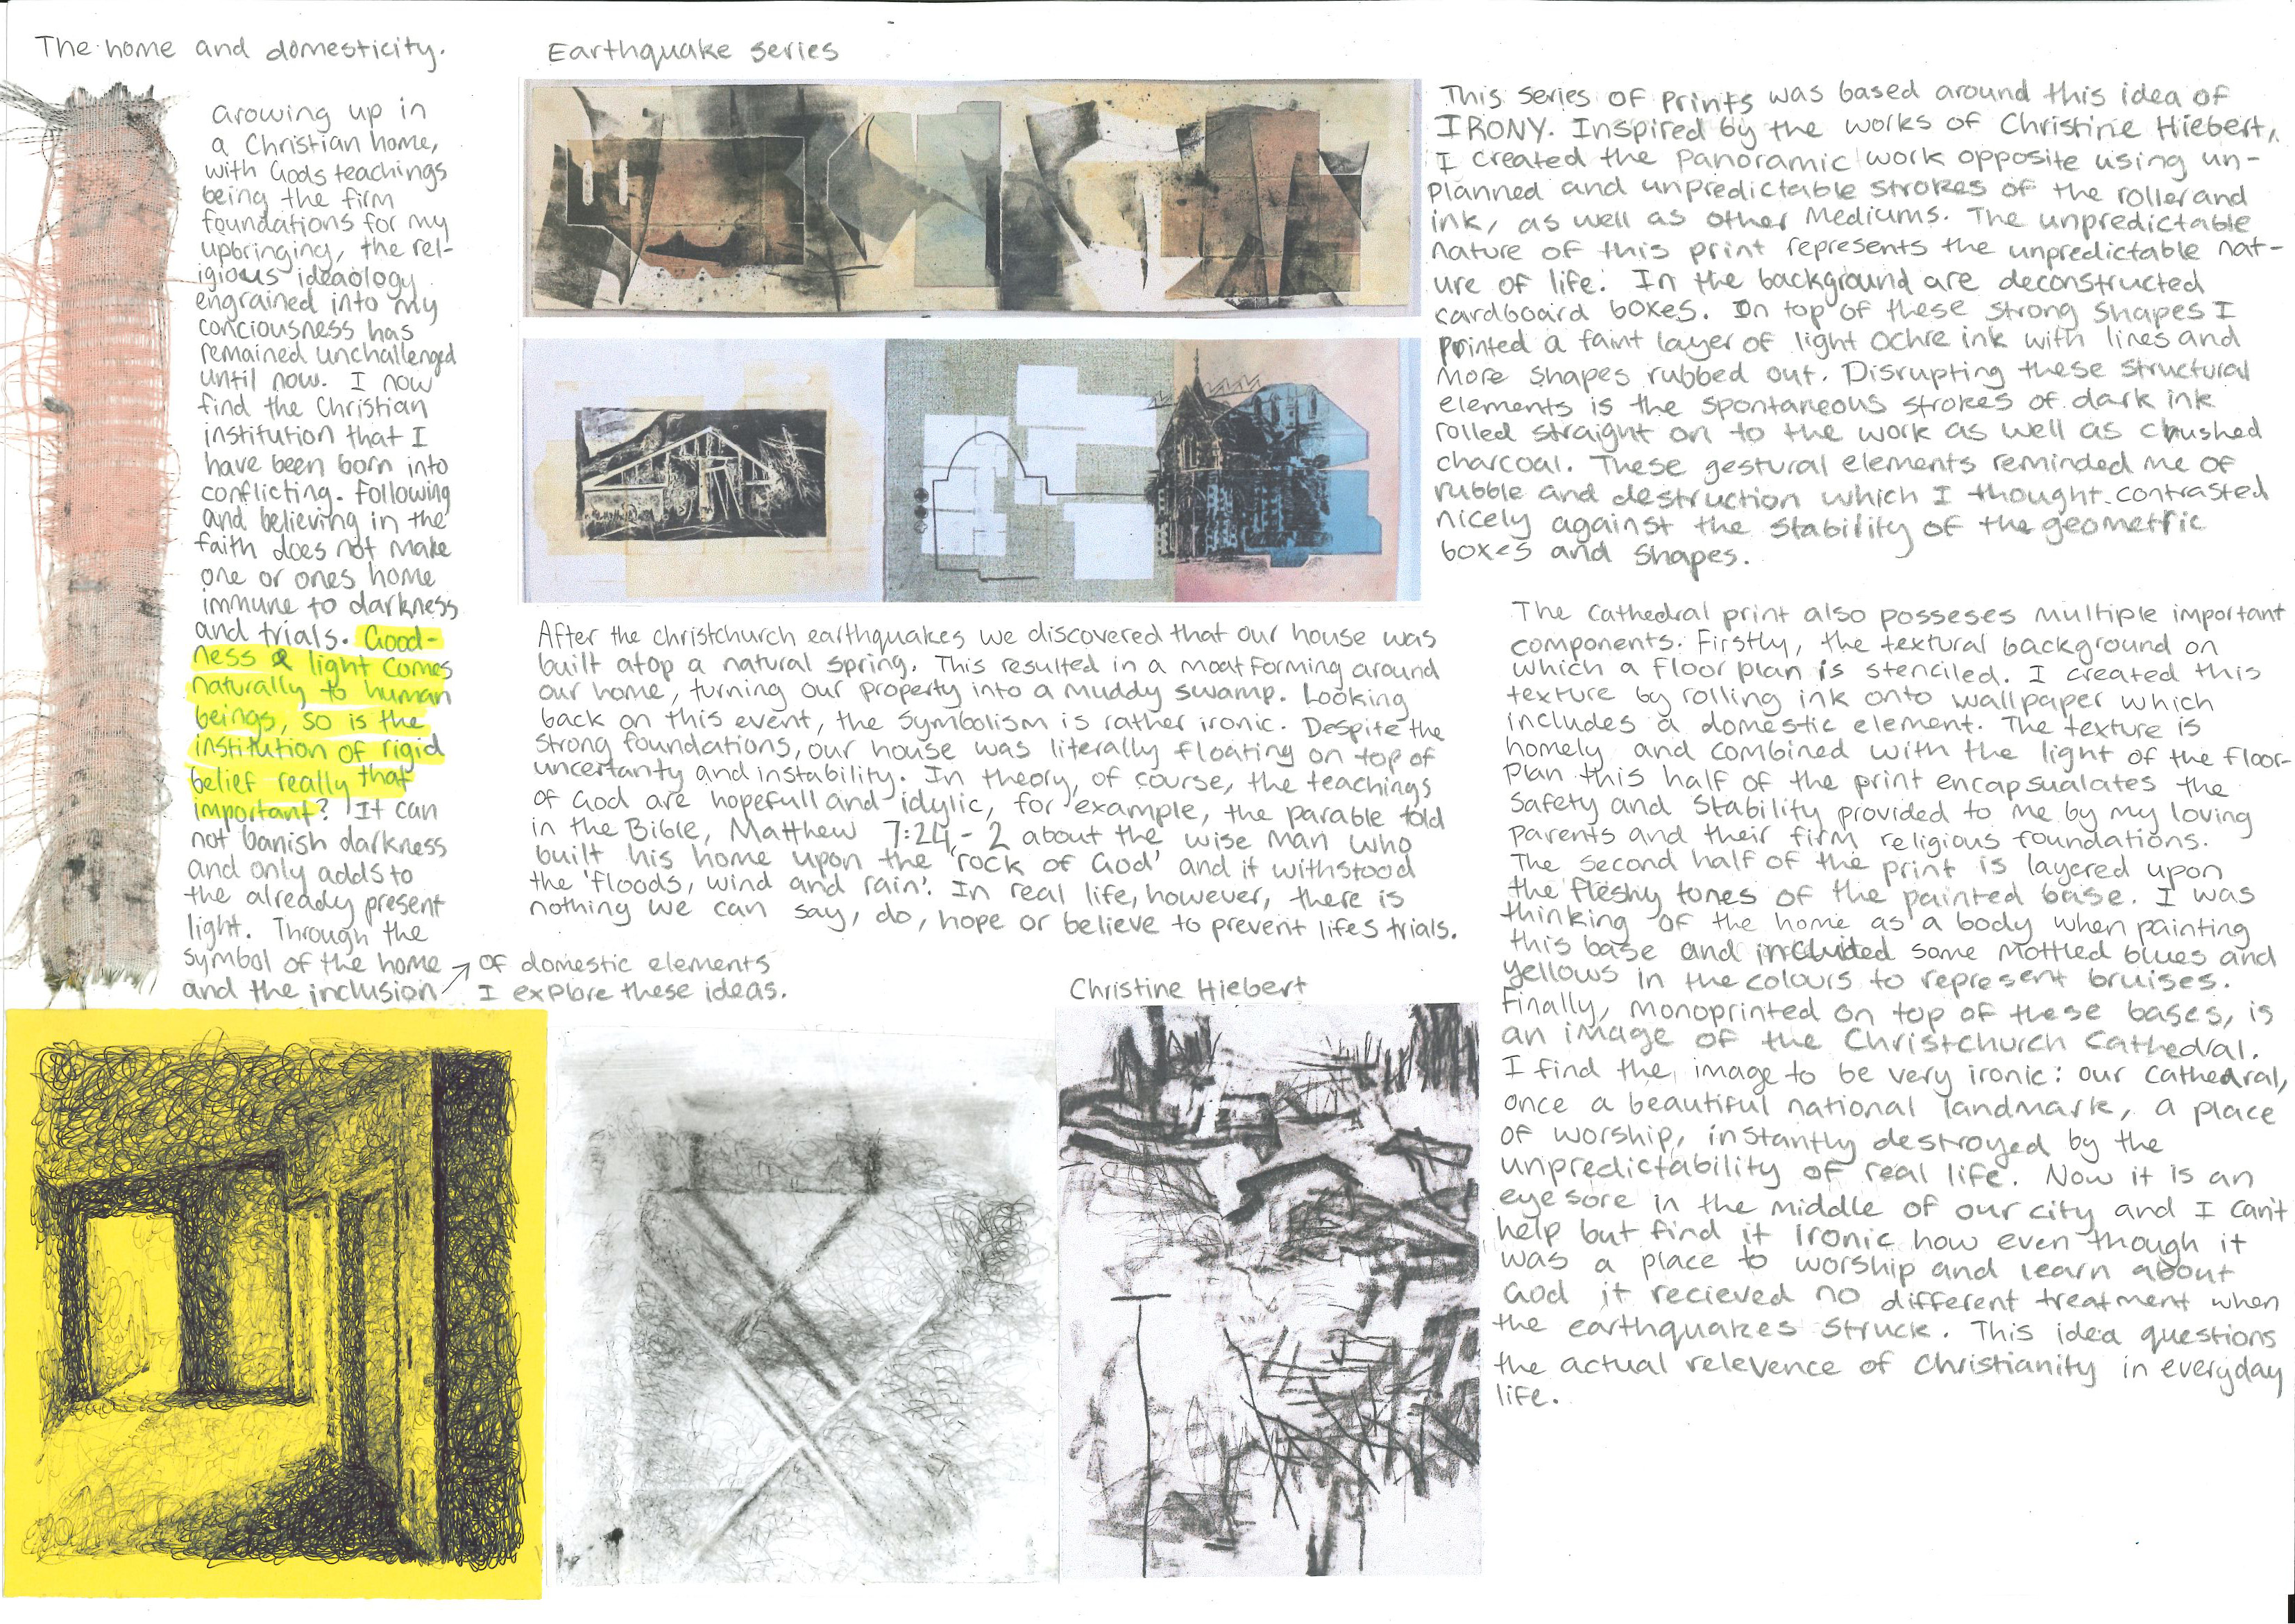 The home and domesticity.
Growing up in
a Christian home,
with Gods teachings
being the firm
foundations for my
upbringing, the rel-
igious ideaology
engrained into my
conciousness has
remained unchallenged
until now. I now
find the Christian
institution that I
have been born into
conflicting. Following
and believing in the
faith does not make
one or ones home
immune to darkness
and trials. Good-
ness & light comes
naturally to human
beings, so is the
institution of rigid
belief really that
important? It can
not banish darkness
and only adds to
the already present
light. Through the
symbol of the home
and the inclusion
of domestic elements
I explore these ideas.
Earthquake series
After the christchurch earthquakes we discovered that our house was
built atop a natural spring. This resulted in a moat forming around
our home, turning our property into a muddy swamp. Looking
back on this event, the symbolism is rather ironic. Despite the
strong foundations, our house was literally floating on top of
uncertanty and instability. In theory, of course, the teachings
of God are hopefull and idylic, for example, the parable told
in the Bible, Matthew 7:24,- 2 about the wise man who
built his home upon the 'rock of God' and it withstood
the 'floods, wind and rain'. In real life, however, there is
nothing we can say, do, hope or believe to prevent lifes trials.
Christine Hiebert
This series of prints was based around this idea of
IRONY. Inspired by the works of Christine Hiebert,
I created the panoramic work opposite using un-
planned and unpredictable strokes of the roller and
ink, as well as other mediums. The unpredictable
nature of this print represents the unpredictable nat-
ure of life. In the background are deconstructed
cardboard boxes. On top of these strong shapes I
printed a faint layer of light ochre ink with lines and
more shapes rubbed out. Disrupting these structural
elements is the spontaneous strokes of dark ink
rolled straight on to the work as well as chushed
charcoal. These gestural elements reminded me of
rubble and destruction which I thought contrasted
nicely against the stability of the geometric
boxes and shapes.
The cathedral print also posseses multiple important
components. Firstly, the textural background on
which a floor plan is stenciled. I created this
texture by rolling ink onto wallpaper which
includes a domestic element. The texture is
homely and combined with the light of the floor-
plan this half of the print encapsualates the
safety and stability provided to me by my loving
parents and their firm religious foundations.
The second half of the print is layered upon
the fleshy tones of the painted base. I was
thinking of the home as a body when painting
this base and included some mottled blues and
yellows in the colours to represent bruises.
Finally, monoprinted on top of these bases, is
an image of the Christchurch Cathedral.
I find the image to be very ironic: our cathedral,
once a beautiful national landmark, a place
of worship, instantly destroyed by the
unpredictability of real life. Now it is an
eye sore in the middle of our city and I can't
help but find it ironic how even though it
was a place to worship and learn about
God it recieved no different treatment when
the earthquakes struck. This idea questions
the actual relevence of Christianity in everyday
life.